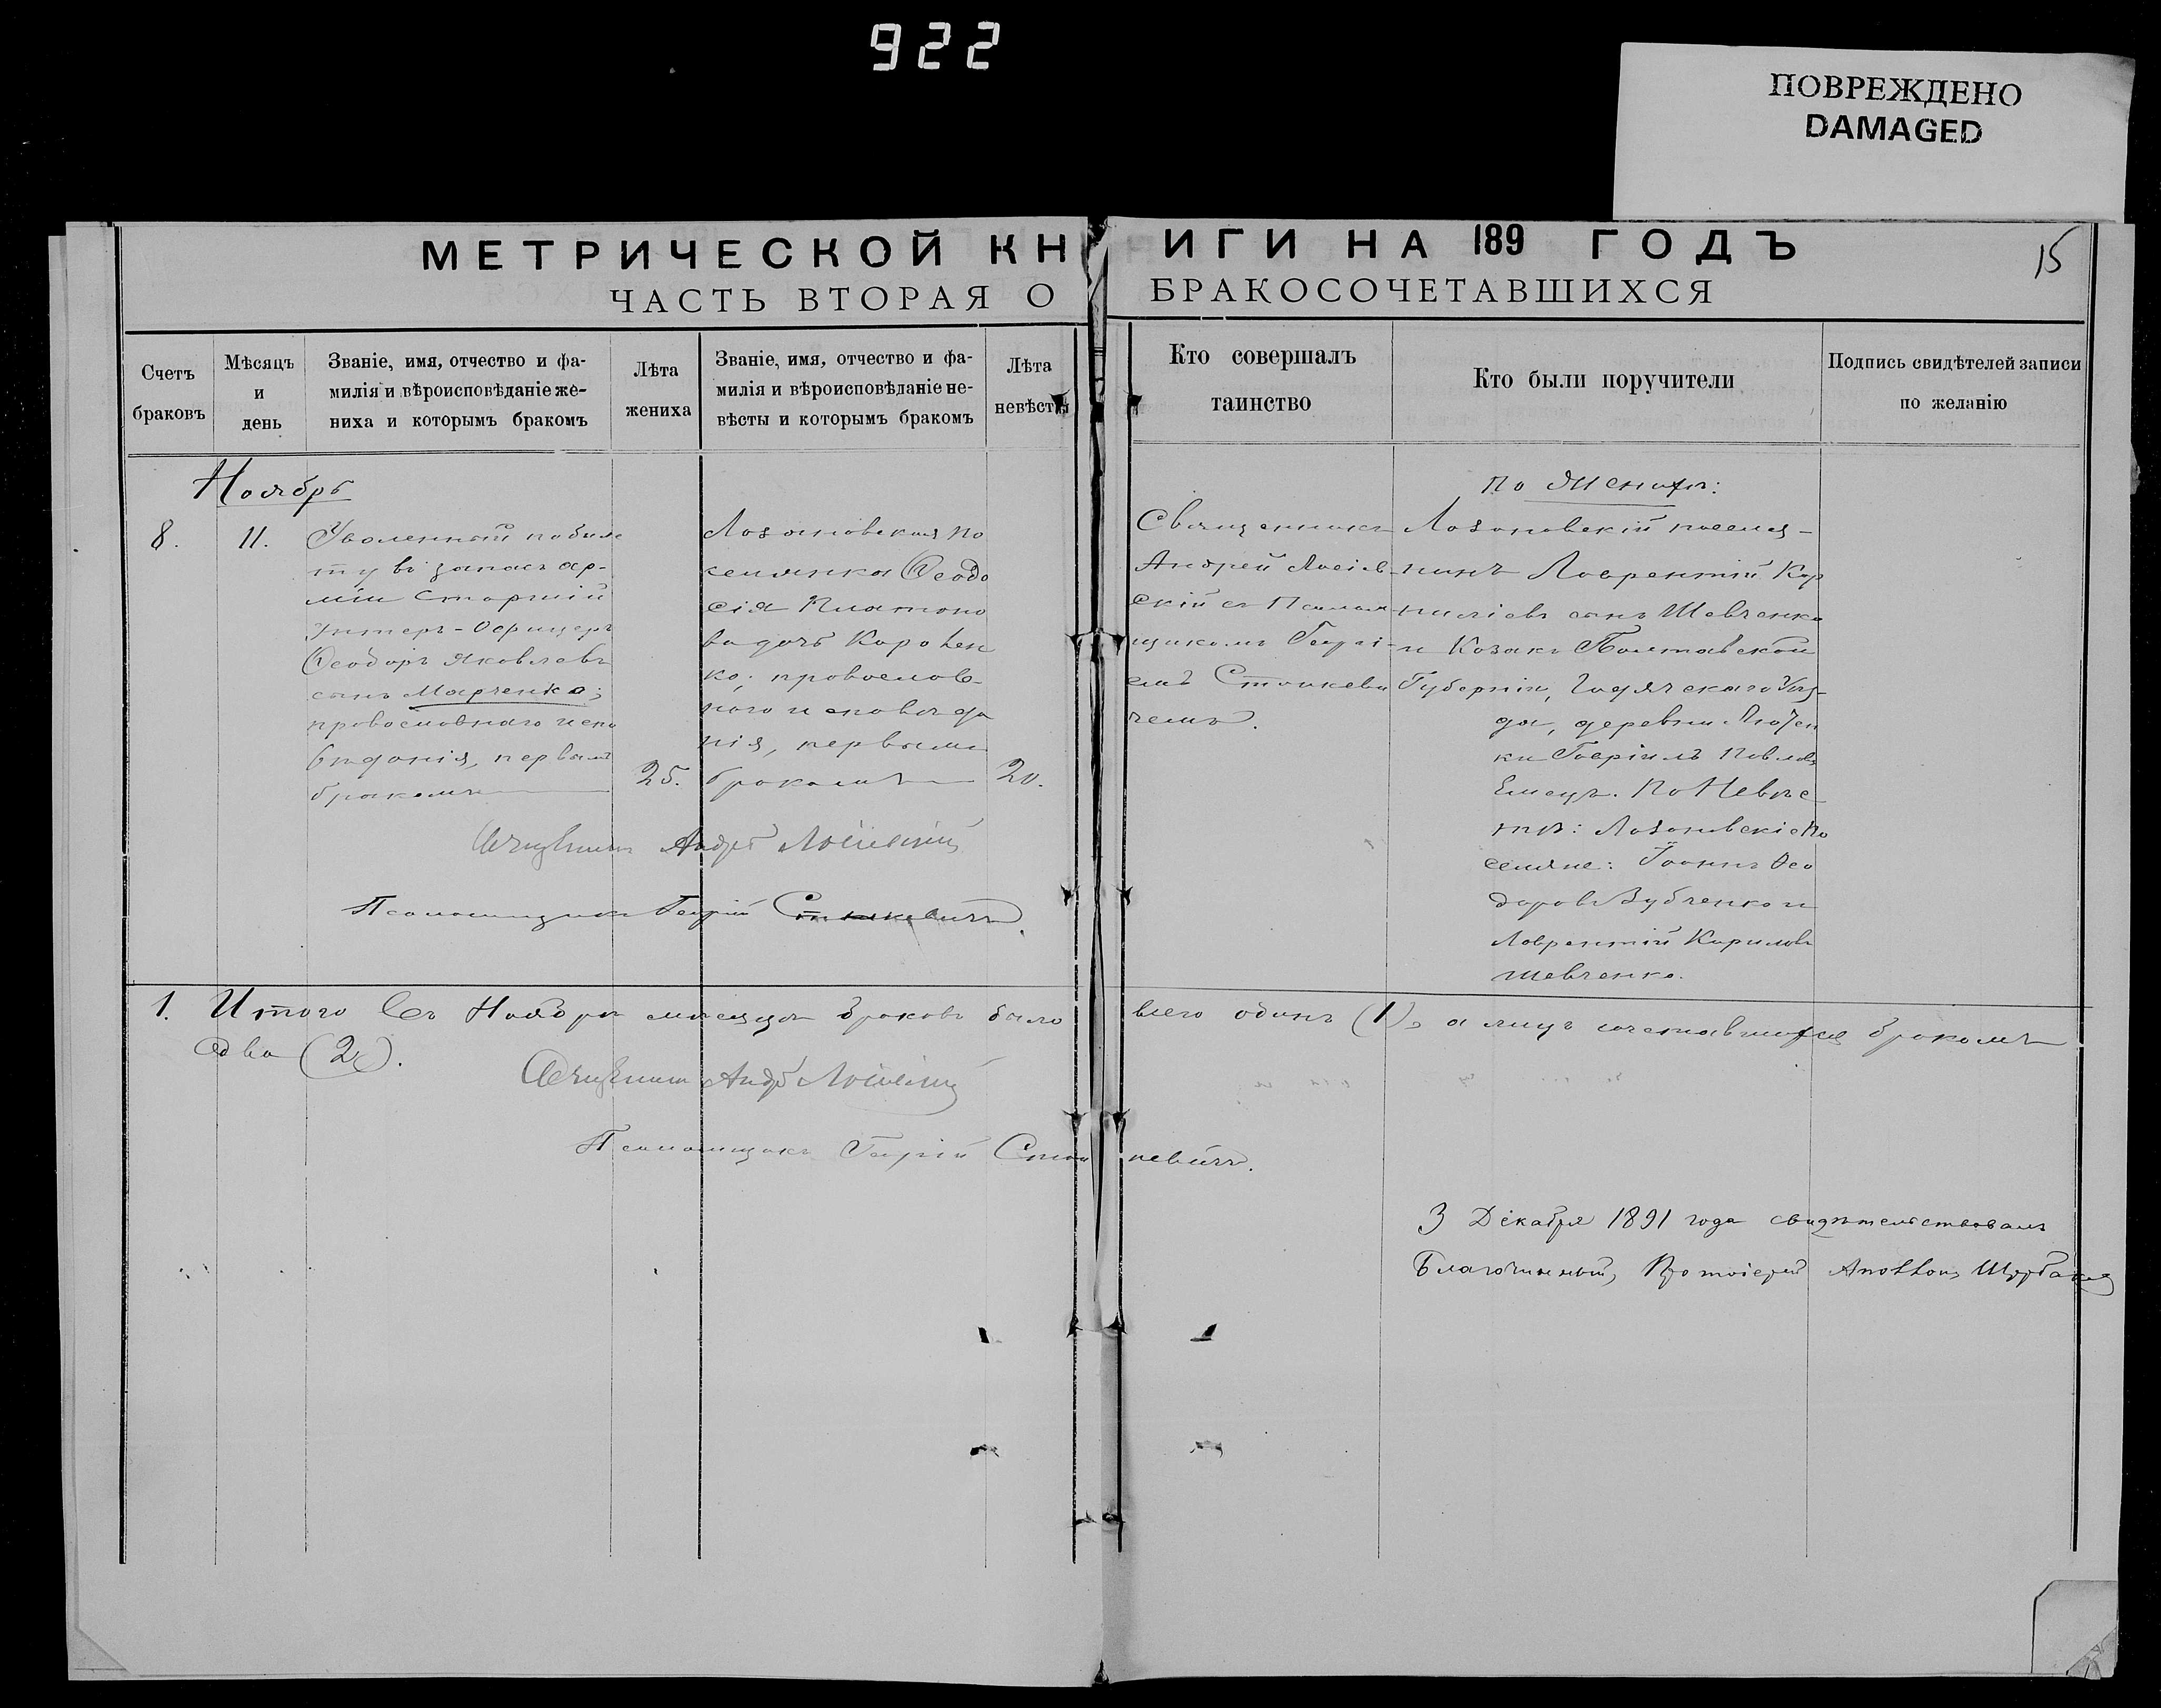 922
ПОВРЕЖДЕНО
DAMAGED
МЕТРИЧЕСКОЙ КНИГИ НА 189 ГОДЪ
15
ЧАСТЬ ВТОРАЯ О БРАКОСОЧЕТАВШИХСЯ
Счетъ
браковъ
Мѣсяцъ
и
день
Званіе, имя, отчество и фа-
милія и вѣроисповѣданіе же-
ниха и которымъ бракомъ
Лѣта
жениха
Званіе, имя, отчество и фа-
милія и вѣроисповѣданіе не-
вѣсты и которымъ бракомъ
Лѣта
невѣсты
Кто совершалъ
таинство
Кто были поручители
Подпись свидѣтелей записи
по желанію
Ноябрь
8.
11.
Уволенный по биле
ту въ запасъ ар-
міи старшій
унтеръ-офицеръ
Ѳеодоръ Яковлевъ
сынъ Марченко;
православнаго испо
вѣданія, первымъ
бракомъ
25.
Лозоновская по
селянка Ѳеодо
сія Платоно
ва дочь Коровен
ко; православ-
наго исповѣда
нія, первымъ
бракомъ
20.
Священникъ
Андрей
скій съ Псалом
щикомъ Георгі-
емъ
чемъ.
По женихѣ:
Лозоновскій поселя-
нинъ Лаврентій Кор
ниліевъ сынъ Шевченко
и Козакъ Полтавской
Губерніи, Гадячскаго Уѣз-
да, деревни
ки Гавріилъ Павловъ
Емецъ. По Невѣс
тѣ: Лозоновскіе По
селяне: Іоаннъ Ѳео
доровъ Зубченко и
Лаврентій Кириловъ
Шевченко.
Священникъ Андрей
Псаломщикъ Георгій
1. Итого въ Ноябрѣ мѣсяцѣ браковъ было всего одинъ (1), а лицъ сочетавшихся бракомъ
два (2).
Священникъ Андрей
Псаломщикъ Георгій
3 Декабря 1891 года свидѣтельствовалъ
Благочинный, Протоіерей